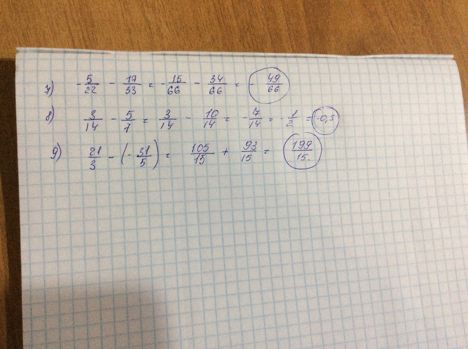 7) -5/22 - 17/33 = -15/66 - 34/66 = -49/66
8) 3/14 - 5/7 = 3/14 - 10/14 = -7/14 = -1/2 = -0,5
9) 21/3 - (-31/5) = 105/15 + 93/15 = 199/15